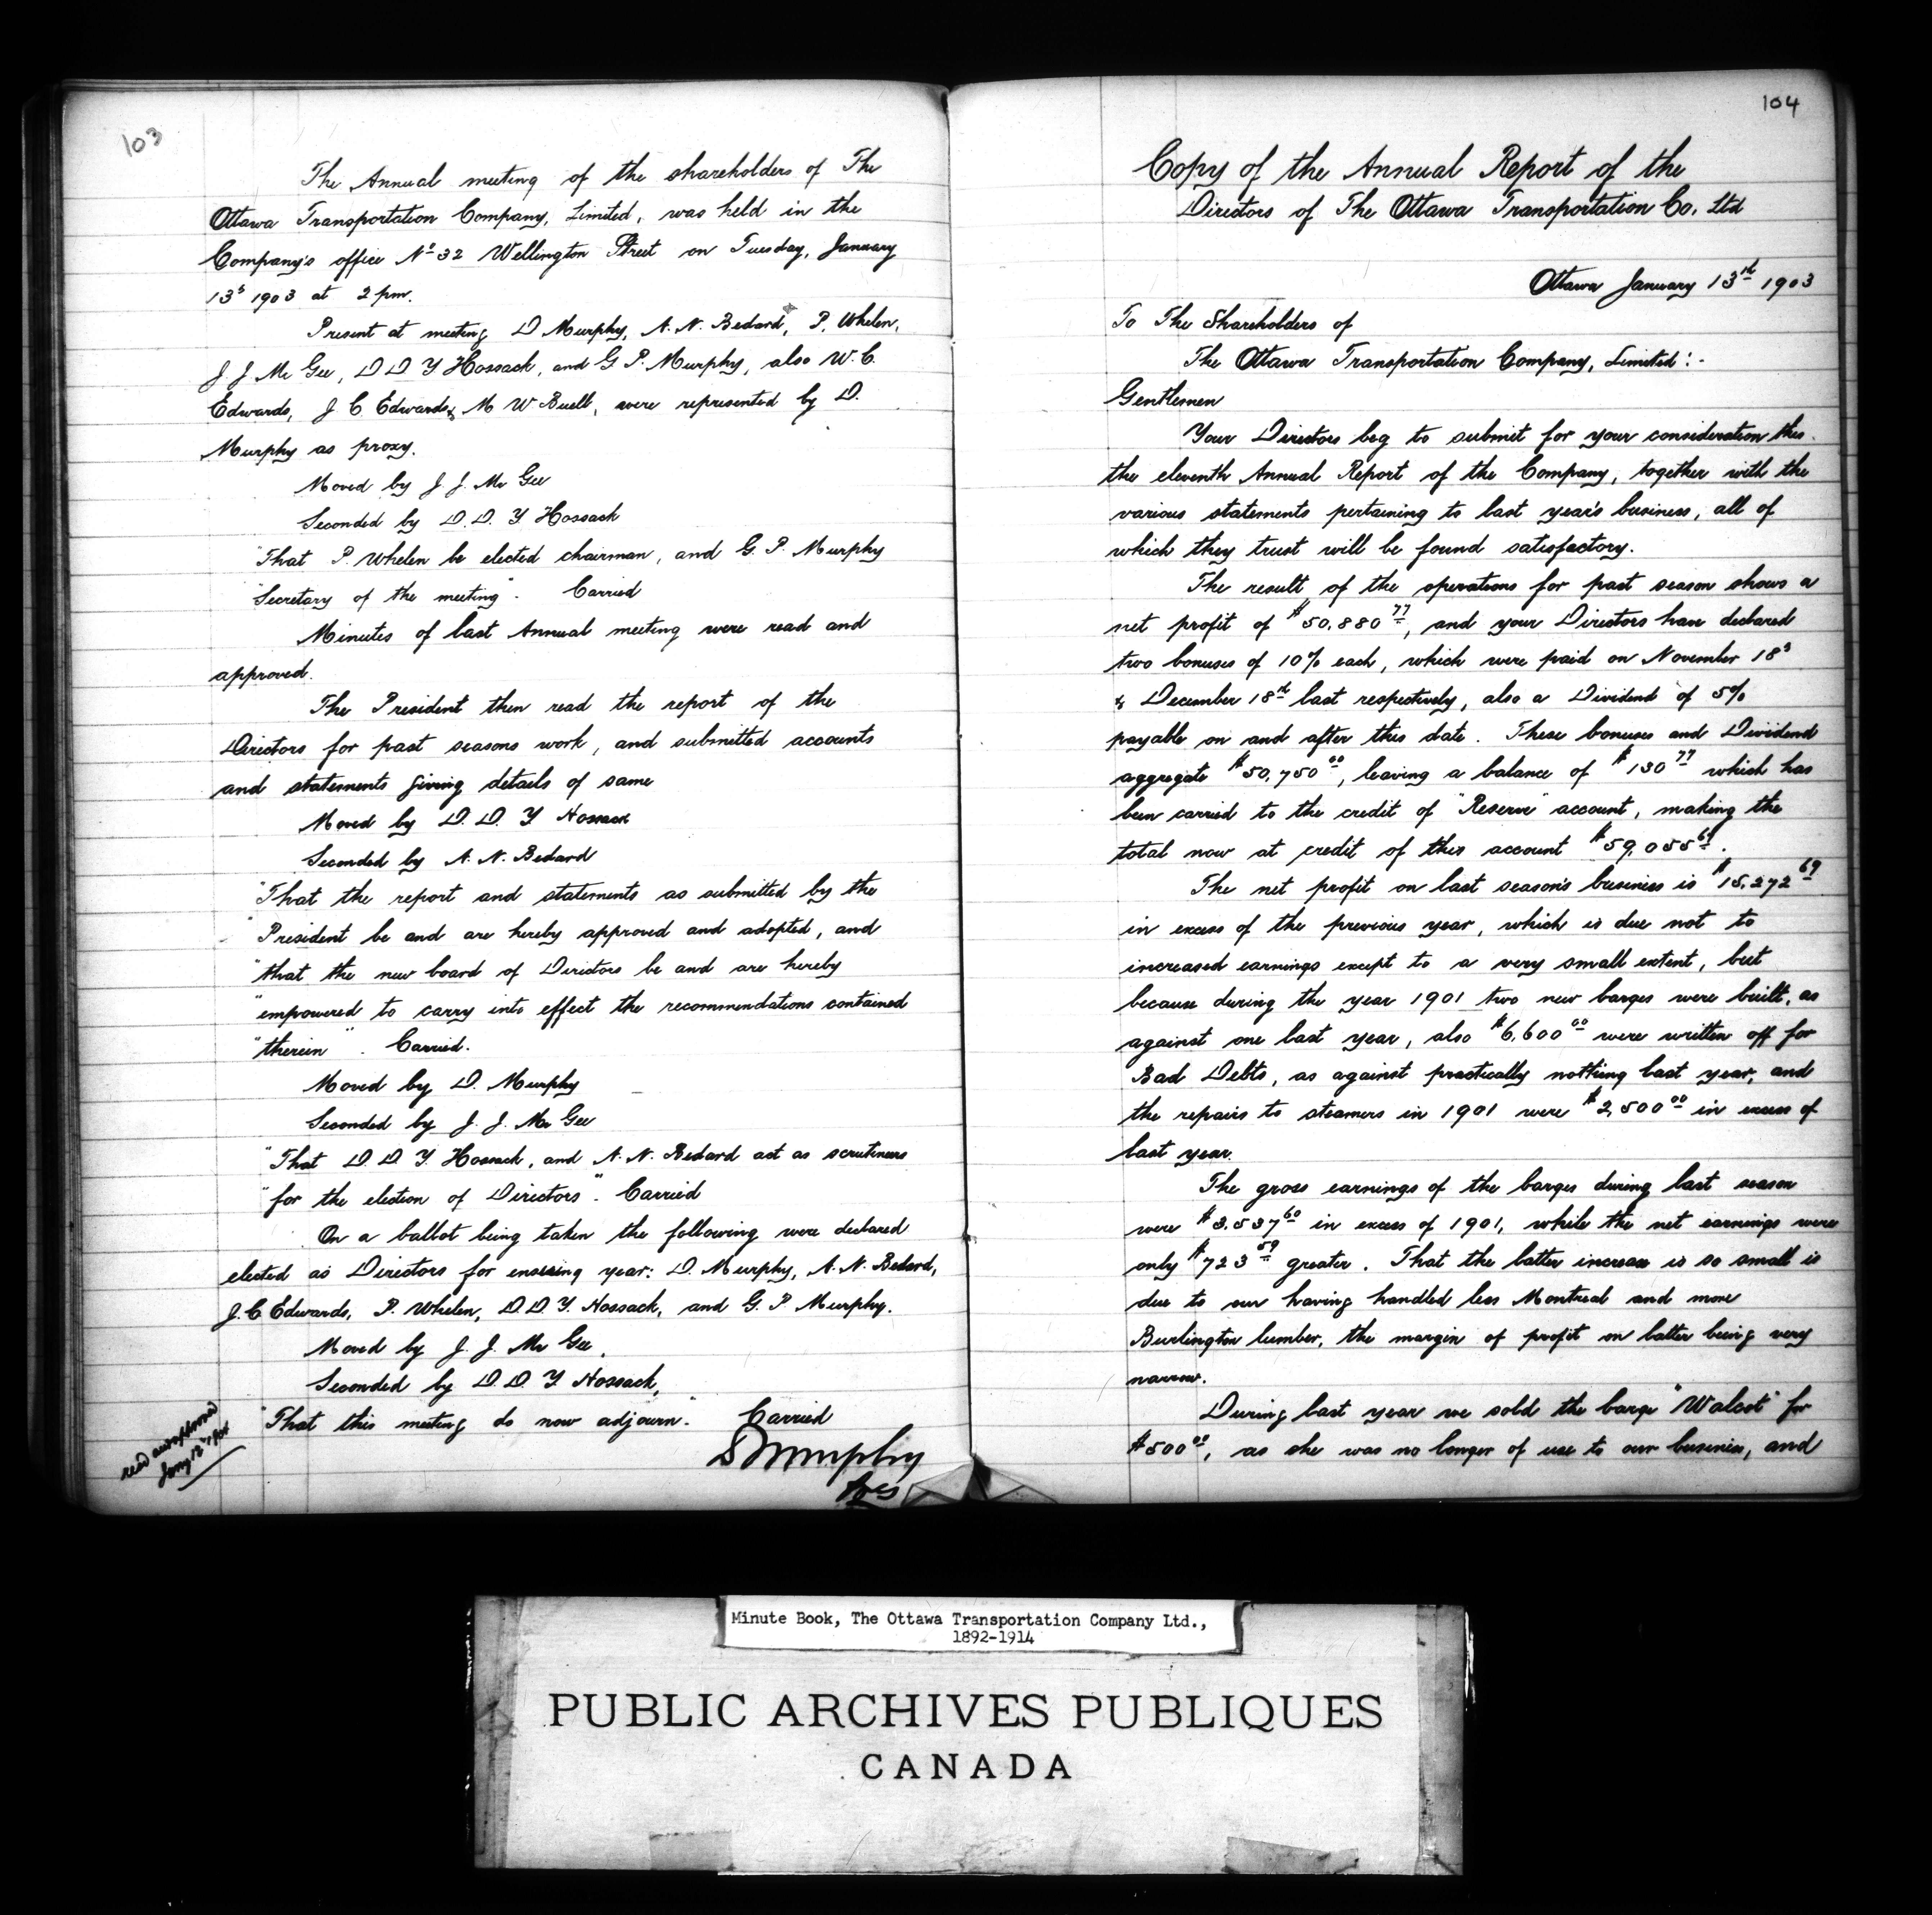 103
The Annual meeting of the shareholders of The
Ottawa Transportation Company, Limited, was held in the
Company's office No 32 Wellington Street on Tuesday, January
13th 1903 at 2 pm.
Present at meeting D Murphy, A. N. Bedard, P. Whelen,
J J McGee, D D Y Hossack, and G P. Murphy, also W. C.
Edwards, J C Edwards & M W Buell, were represented by D.
Murphy as proxy.
Moved by J. J. McGee
Seconded by D. D. Y Hossack
"That P. Whelen be elected chairman, and G. P. Murphy
"Secretary of the meeting". Carried
Minutes of last Annual meeting were read and
approved.
The President then read the report of the
Directors for past seasons work, and submitted accounts
and statements giving details of same
Moved by D. D. Y Hossack
Seconded by A. N. Bedard
"That the report and statements as submitted by the
"President be and are hereby approved and adopted, and
"that the new board of Directors be and are hereby
"empowered to carry into effect the recommendations contained
"therein". Carried.
Moved by D. Murphy
Seconded by J. J. McGee
"That D. D. Y. Hossack, and A. N. Bedard act as scrutineers
"for the election of Directors". Carried
On a ballot being taken the following were declared
elected as Directors for ensuing year: D. Murphy, A. N. Bedard,
J. C Edwards, P. Whelen, D. D. Y. Hossack, and G. P. Murphy.
Moved by J. J. McGee,
Seconded by D. D. Y Hossack,
"That this meeting do now adjourn". Carried
D Murphy
Pres
read and approved
Jany 12th 1904
104
Copy of the Annual Report of the
Directors of The Ottawa Transportation Co. Ltd
Ottawa January 13th 1903
To The Shareholders of
The Ottawa Transportation Company, Limited:-
Gentlemen
Your Directors beg to submit for your consideration this
the eleventh Annual Report of the Company, together with the
various statements pertaining to last year's business, all of
which they trust will be found satisfactory.
The result of the operations for past season shows a
net profit of $50,880 77, and your Directors have declared
two bonuses of 10% each, which were paid on November 18th
& December 18th last respectively, also a Dividend of 5%
payable on and after this date. These bonuses and Dividend
aggregate $50,750 00, leaving a balance of $130 77 which has
been carried to the credit of "Reserve" account, making the
total now at credit of this account $59,055 64.
The net profit on last season's business is $15,272 69
in excess of the previous year, which is due not to
increased earnings except to a very small extent, but
because during the year 1901 two new barges were built, as
against one last year, also $6,600 00 were written off for
Bad Debts, as against practically nothing last year, and
the repairs to steamers in 1901 were $2,500 00 in excess of
last year.
The gross earnings of the barges during last season
were $3,537 60 in excess of 1901, while the net earnings were
only $723 59 greater. That the latter increase is so small is
due to our having handled less Montreal and more
Burlington lumber, the margin of profit on latter being very
narrow.
During last year we sold the barge "Walcot" for
$500 00, as she was no longer of use to our business, and
Minute Book, The Ottawa Transportation Company Ltd.,
1892-1914
PUBLIC ARCHIVES PUBLIQUES
CANADA